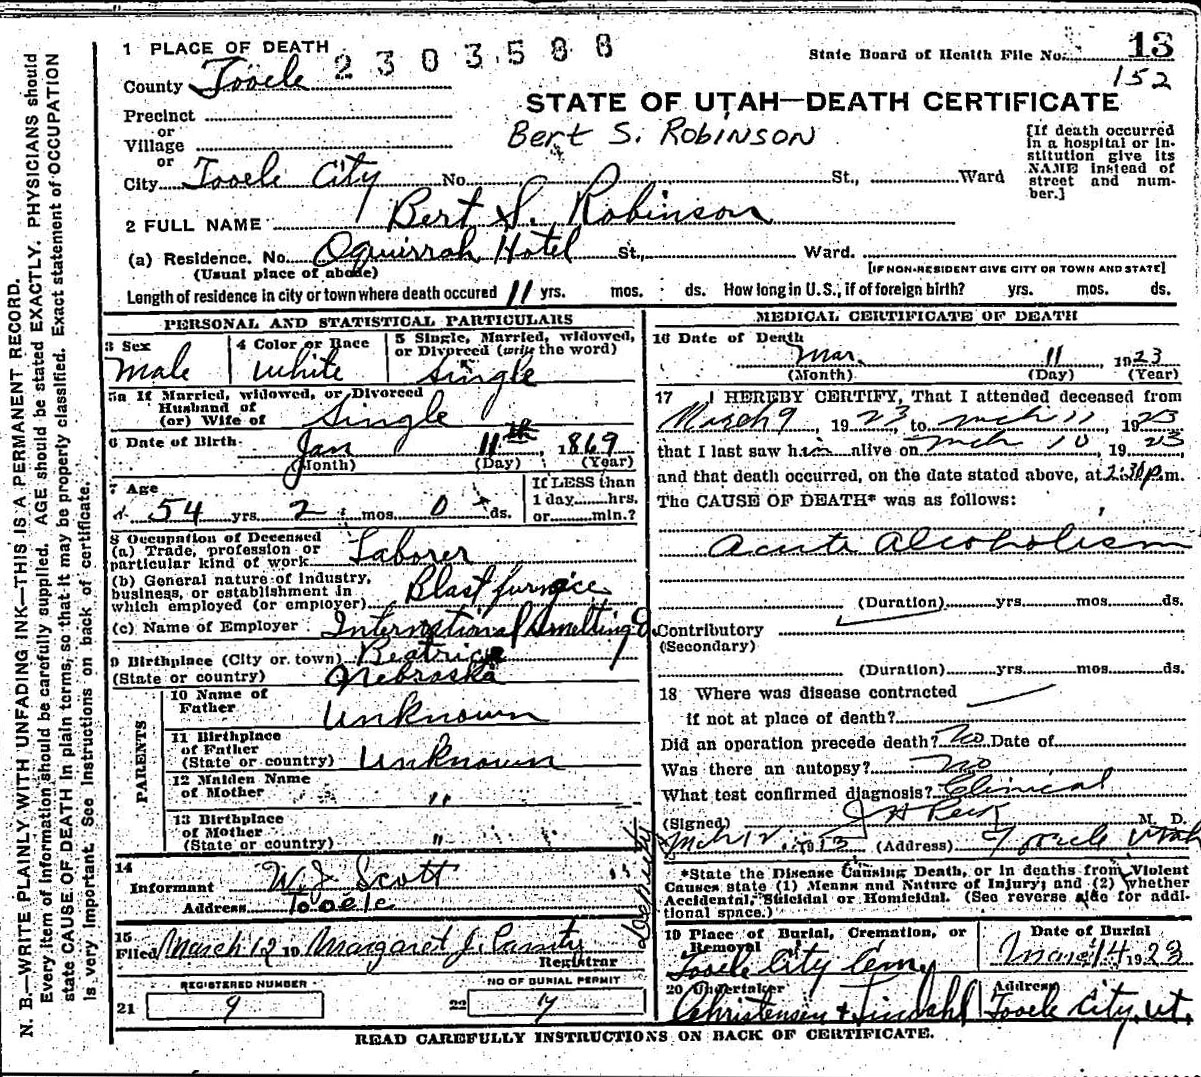 1 PLACE OF DEATH
2303588
State Board of Health File No. 13
152
County Tooele
STATE OF UTAH—DEATH CERTIFICATE
Bert S. Robinson
Precinct
or
Village
or
City Tooele City No. St., Ward
[If death occurred in a hospital or institution give its NAME instead of street and number.]
2 FULL NAME Bert S. Robinson
(a) Residence. No. Oquirrah Hotel St., Ward.
(Usual place of abode) [IF NON-RESIDENT GIVE CITY OR TOWN AND STATE]
Length of residence in city or town where death occured 11 yrs. mos. ds. How long in U.S., if of foreign birth? yrs. mos. ds.
PERSONAL AND STATISTICAL PARTICULARS
3 Sex
Male
4 Color or Race
White
5 Single, Married, widowed, or Divorced (write the word)
Single
5a If Married, widowed, or Divorced
Husband of
(or) Wife of Single
6 Date of Birth Jan 11th, 1869
(Month) (Day) (Year)
7 Age
54 yrs. 2 mos. 0 ds.
If LESS than
1 day......hrs.
or......min.?
8 Occupation of Deceased
(a) Trade, profession or
particular kind of work Laborer
(b) General nature of industry,
business, or establishment in
which employed (or employer) Blast furnace
(c) Name of Employer International Smelting
9 Birthplace (City or town) Beatrice
(State or country) Nebraska
PARENTS
10 Name of
Father Unknown
11 Birthplace
of Father
(State or country) Unknown
12 Maiden Name
of Mother "
13 Birthplace
of Mother
(State or country) "
14
Informant W. J. Scott
Address Tooele
15
Filed March 12 19 Margaret J.
Registrar
Deputy
REGISTERED NUMBER
21 9
NO OF BURIAL PERMIT
22 7
MEDICAL CERTIFICATE OF DEATH
16 Date of Death
Mar. 11 1923
(Month) (Day) (Year)
17 I HEREBY CERTIFY, That I attended deceased from
March 9, 1923, to Mch 11, 1923
that I last saw him alive on Mch 10, 1923,
and that death occurred, on the date stated above, at 2:30 p.m.
The CAUSE OF DEATH* was as follows:
Acute Alcoholism
(Duration) yrs. mos. ds.
Contributory
(Secondary)
(Duration) yrs. mos. ds.
18 Where was disease contracted
if not at place of death?
Did an operation precede death? No Date of
Was there an autopsy? No
What test confirmed diagnosis? Clinical
(Signed) J H Peck M. D.
Mch 12. (Address) Tooele Utah
*State the Disease Causing Death, or in deaths from Violent
Causes state (1) Means and Nature of Injury; and (2) whether
Accidental, Suicidal or Homicidal. (See reverse side for addi-
tional space.)
19 Place of Burial, Cremation, or
Removal
Tooele City Cemy
Date of Burial
March 14 1923
20 Undertaker
Christensen +
Address
Tooele City, Ut.
READ CAREFULLY INSTRUCTIONS ON BACK OF CERTIFICATE.
N. B.—WRITE PLAINLY WITH UNFADING INK—THIS IS A PERMANENT RECORD.
Every item of information should be carefully supplied. AGE should be stated EXACTLY. PHYSICIANS should
state CAUSE OF DEATH in plain terms, so that it may be properly classified. Exact statement of OCCUPATION
is very important. See instructions on back of certificate.